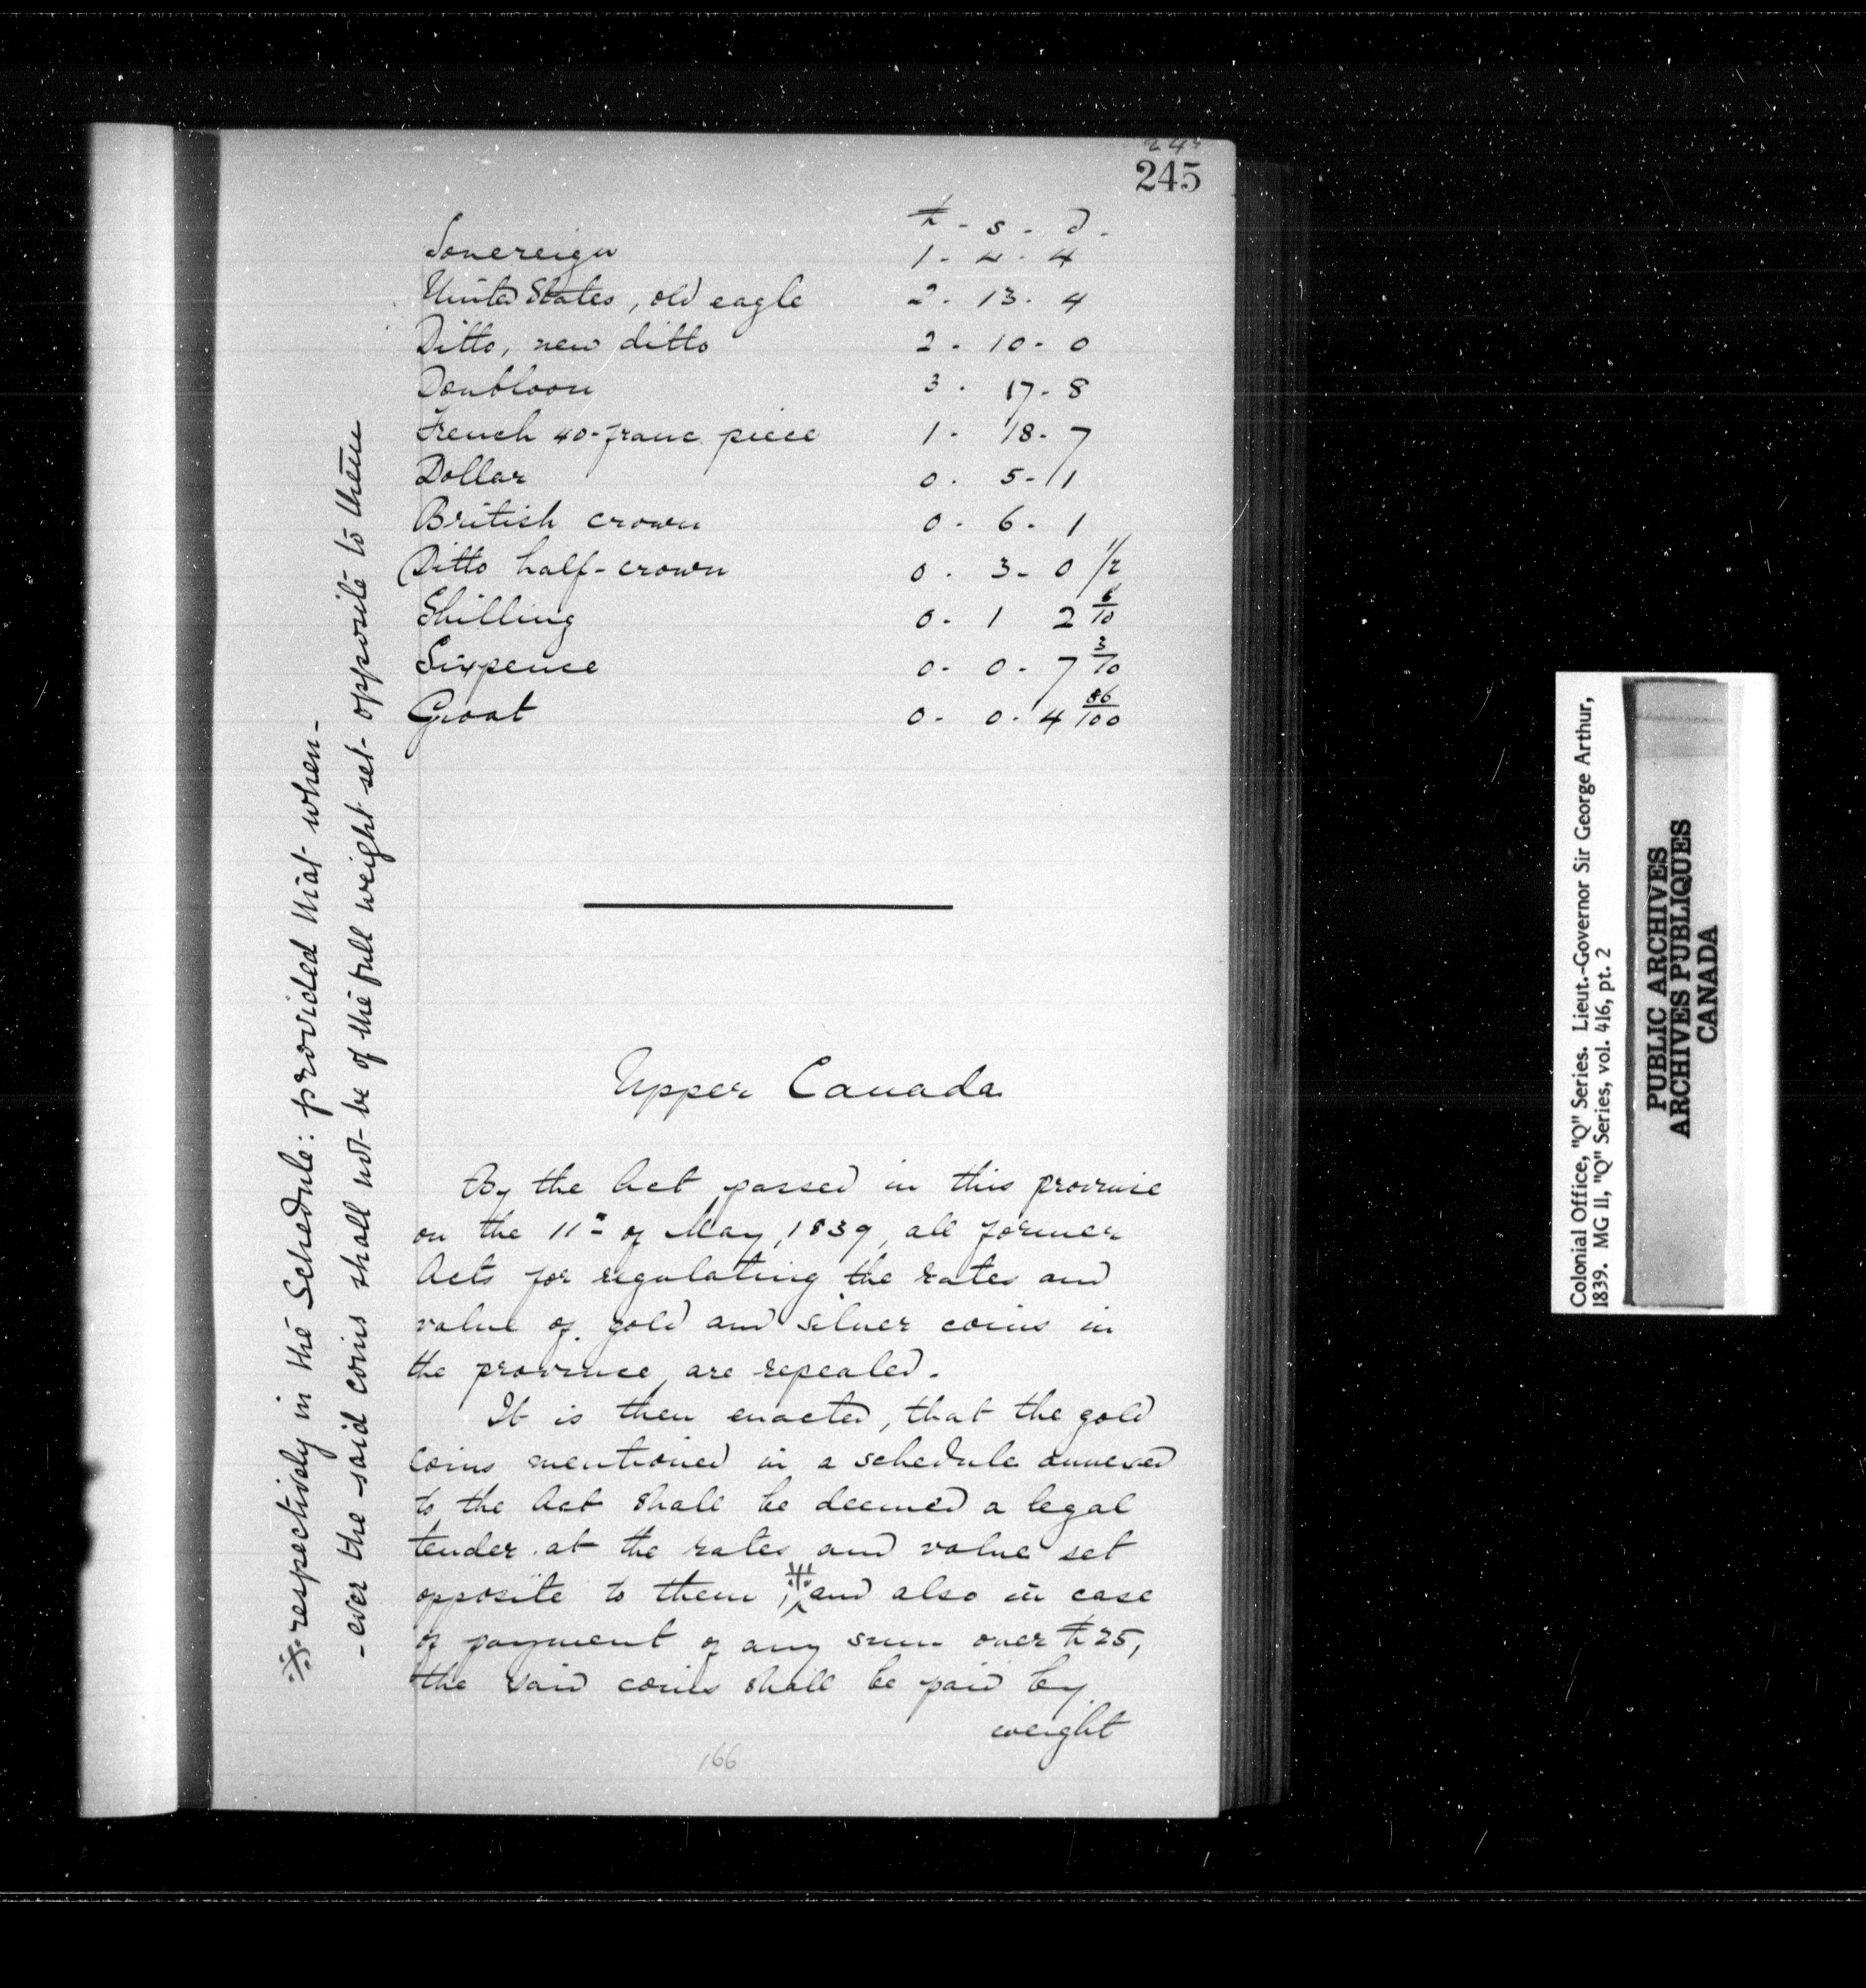 245
£ - s - d -
Sovereign 1 - 4 - 4
United States, old eagle 2 - 13 - 4
Ditto, new ditto 2 - 10 - 0
Doubloon 3 - 17 - 8
French 40-franc piece 1 - 18 - 7
Dollar 0 - 5 - 1
British crown 0 - 6 - 1
Ditto half-crown 0 - 3 - 0 1/2
Shilling 0 - 1 2 6/10
Sixpence 0 - 0 - 7 3/10
Groat 0 - 0 - 4 86/100
Upper Canada
By the Act passed in this province
on the 11th of May, 1839, all former
Acts for regulating the rates and
value of gold and silver coins in
the province, are repealed.
It is then enacted, that the gold
coins mentioned in a schedule annexed
to the Act shall be deemed a legal
tender at the rates and value set
opposite to them ;※ and also in case
of payment of any sum over £25,
the said coins shall be paid by
weight
166
※ respectively in the Schedule: provided that when-
-ever the said coins shall not be of the full weight set opposite to them
Colonial Office, "Q" Series. Lieut.-Governor Sir George Arthur,
1839. MG 11, "Q" Series, vol. 416, pt. 2
PUBLIC ARCHIVES
ARCHIVES PUBLIQUES
CANADA